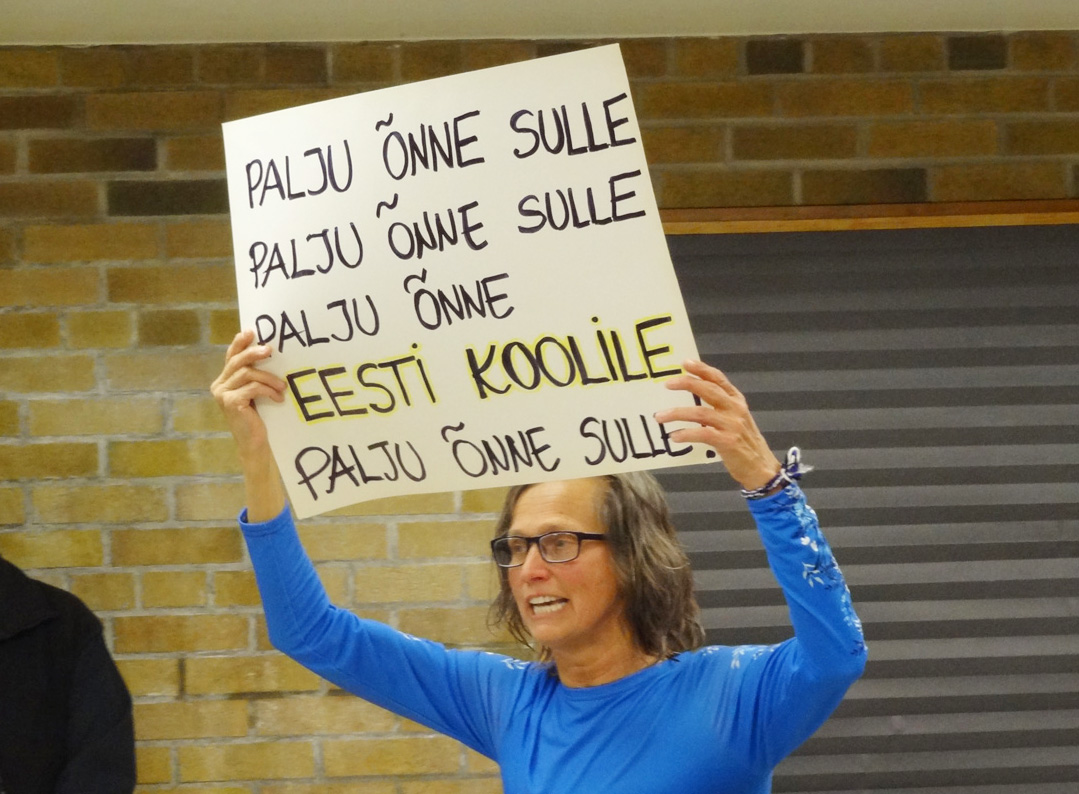 PALJU ÕNNE SULLE
PALJU ÕNNE SULLE
PALJU ÕNNE
EESTi KOOLiLE
PALJU ÕNNE SULLE!